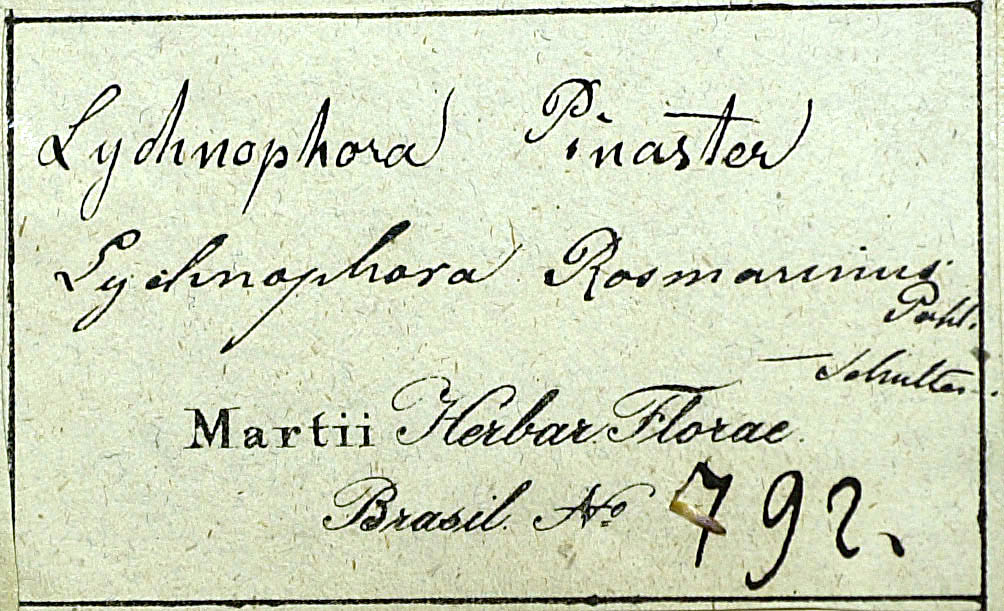 Lychnophora Pinaster
Lychnophora Rosmarinus
Pohl.
— Schultes.
Martii Herbar. Florae
Brasil. No 792.